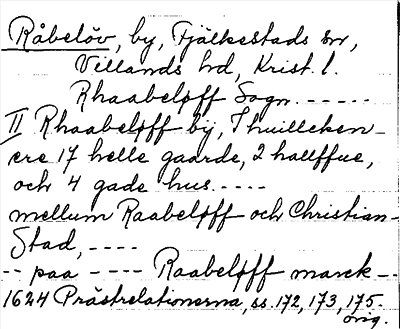 Råbelöv, by, Fjälkestads sn,
Villands hd, Krist. l.
Rhaabeløff Sogn. -----
II Rhaabeløff bÿ, I huilleken-
ere 17 helle gaarde, 2 hallffue,
och 4 gade hus. ----
mellum Raabeløff och Christian-
Stad, ----
-- paa ---- Raabeløff marck --
1624 Prästrelationerna, ss. 172, 173, 175.
orig.